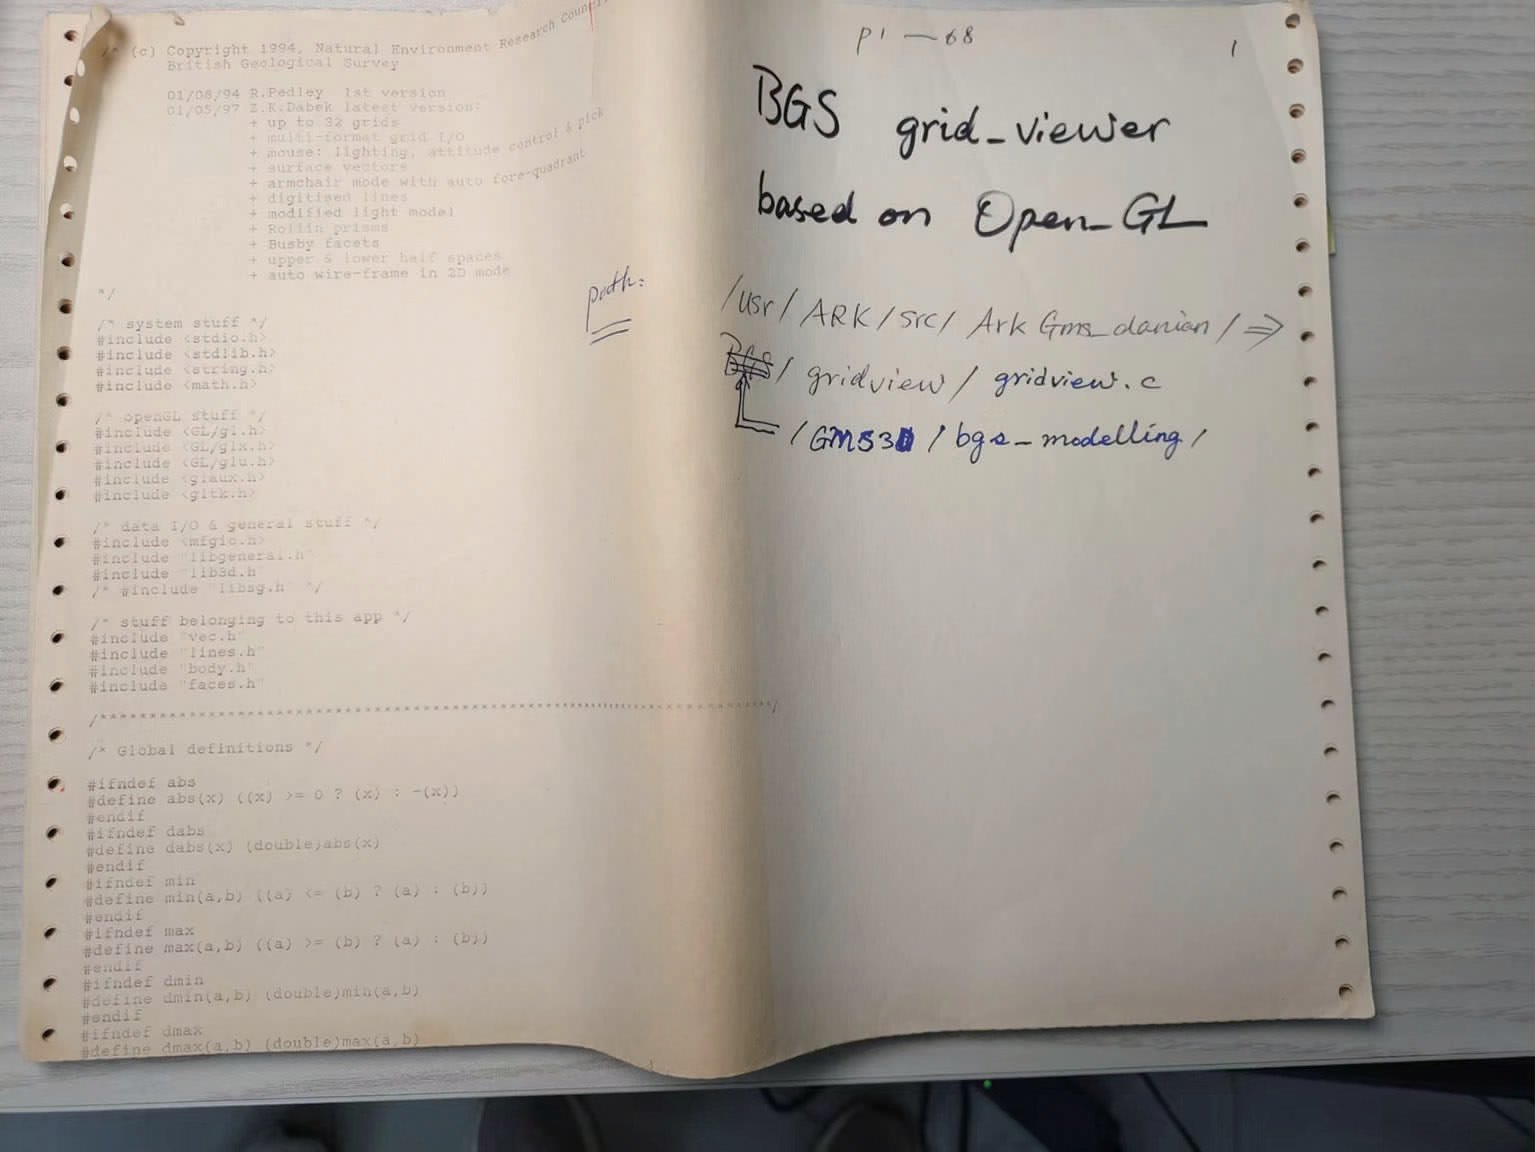 /* (c) Copyright 1994, Natural Environment Research Council,
British Geological Survey
01/08/94 R.Pedley 1st version
01/05/97 Z.K.Dabek latest version:
+ up to 32 grids
+ multi-format grid I/O
+ mouse: lighting, attitude control & pick
+ surface vectors
+ armchair mode with auto fore-quadrant
+ digitised lines
+ modified light model
+ Rollin prisms
+ Busby facets
+ upper & lower half spaces
+ auto wire-frame in 2D mode
*/
/* system stuff */
#include <stdio.h>
#include <stdlib.h>
#include <string.h>
#include <math.h>
/* openGL stuff */
#include <GL/gl.h>
#include <GL/glx.h>
#include <GL/glu.h>
#include <glaux.h>
#include <gltk.h>
/* data I/O & general stuff */
#include <mfgio.h>
#include "libgeneral.h"
#include "lib3d.h"
/* #include "libsg.h" */
/* stuff belonging to this app */
#include "vec.h"
#include "lines.h"
#include "body.h"
#include "faces.h"
/* Global definitions */
#ifndef abs
#define abs(x) ((x) >= 0 ? (x) : -(x))
#endif
#ifndef dabs
#define dabs(x) (double)abs(x)
#endif
#ifndef min
#define min(a,b) ((a) <= (b) ? (a) : (b))
#endif
#ifndef max
#define max(a,b) ((a) >= (b) ? (a) : (b))
#endif
#ifndef dmin
#define dmin(a,b) (double)min(a,b)
#endif
#ifndef dmax
#define dmax(a,b) (double)max(a,b)
P1 — 68
1
BGS grid_viewer
based on Open_GL
path:
/usr/ARK/src/Ark Gms_danian/⇒
BGS/gridview/gridview.c
/GMS3D/bgs_modelling/